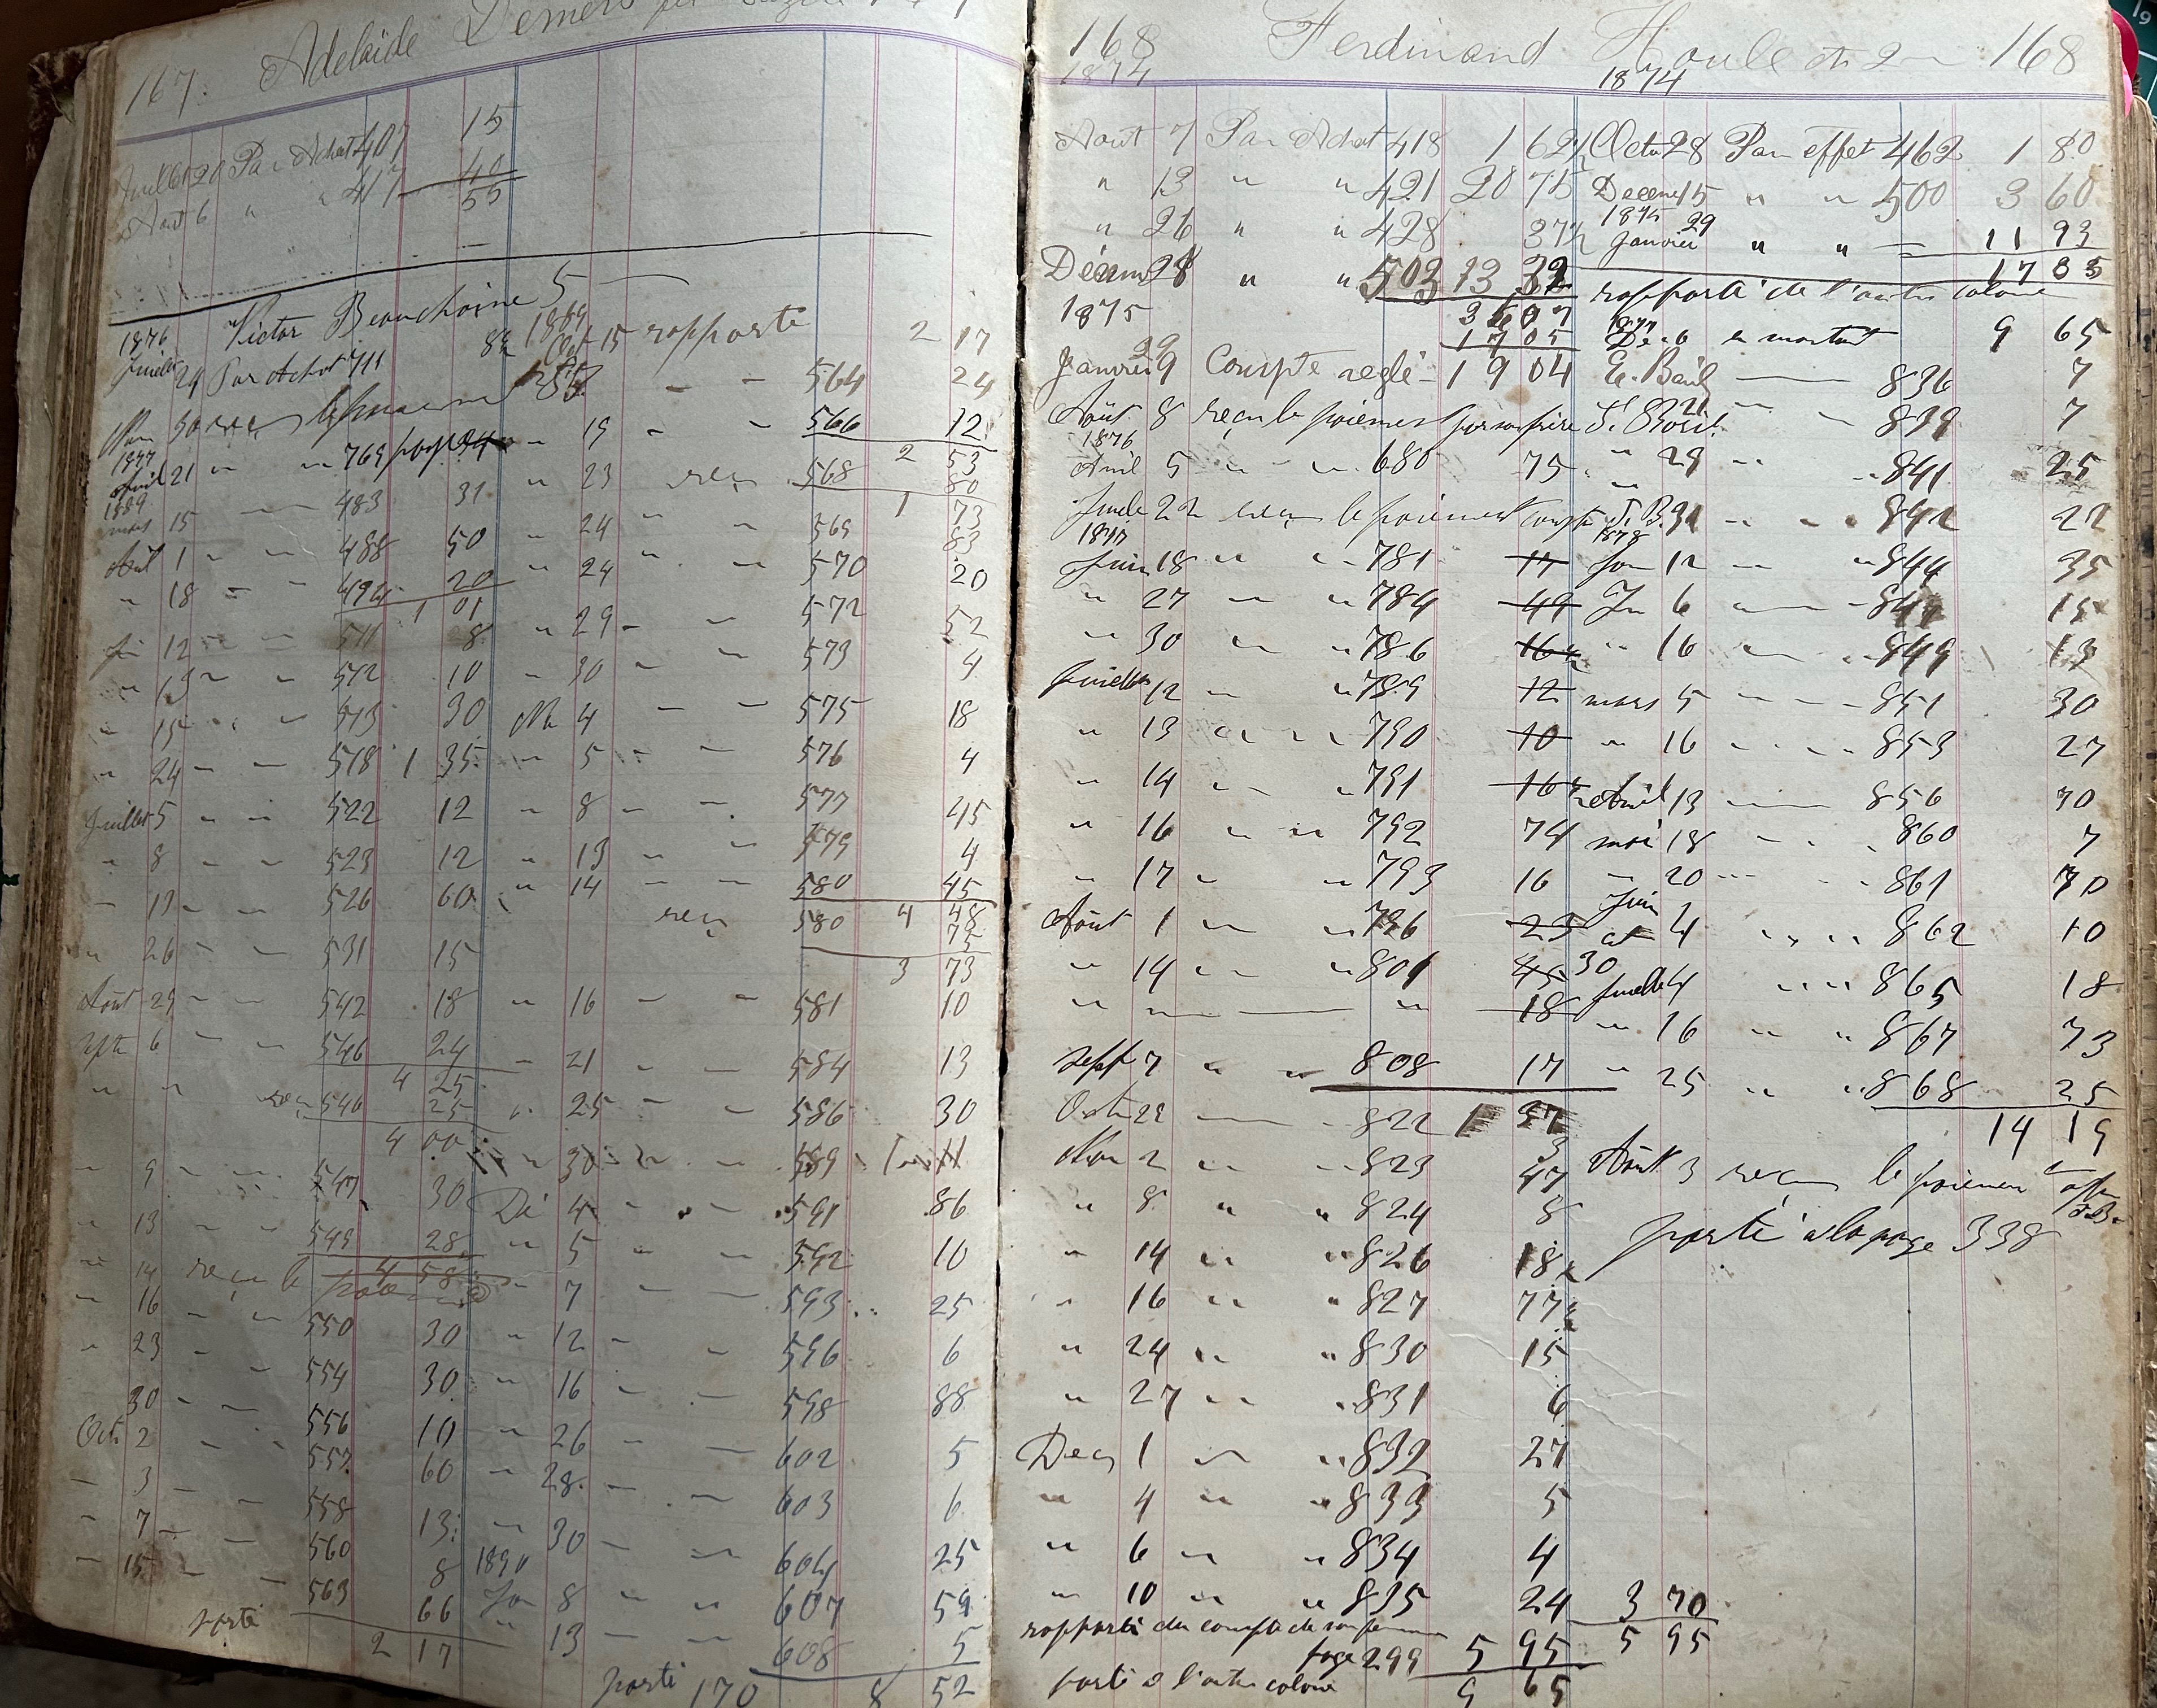 167. Adelaide Demers
Juillet 20 Par Achat 407 15
Aout 6 " " 417 40
55
1876 Victor Beauchaine 5
Juillet 24 Par Achat 711 8½
1877
Avril 21 " " 769
1889
mars 15 483 31
Avril 1 " " 488 50
" 18 " " 494 20
1 01
Jui 12 " " 511 8
" 13 " " 512 10
" 15 " " 513 30
" 24 " " 518 1 35
Juillet 5 " " 522 12
" 8 " " 523 12
" 526 60
" 26 " " 531 15
Août 29 " " 542 18
6 " " 546 24
4 25
" " reçu 546 25
4 00
" 9 " " 547 30
" 13 " " 549 28
4 58
" 14 reçu le
" 16 " " 550 30
" 23 " " 554 30
30 " " 556 10
Oct 2 " " 557 60
" 3 " " 558 13
" 7 " " 560 8
" 15 " " 563 66
porté 2 17
1889
Oct 15 rapporté 2 17
564 24
" 19 " " 566 12
2 53
" 23 reçu 568 80
1 73
" 24 " " 569 83
" 24 " " 570 20
" 29 " " 572 52
" 30 " " 573 4
No 4 " " 575 18
" 5 " " 576 4
" 8 " " 577 45
" 13 " " 579 4
" 14 " " 580 45
4 48
reçu 580 75
3 73
" 16 " " 581 10
" 21 " " 584 13
" 25 " " 586 30
" 30 " " 589
Dé 4 " " 591 86
" 5 " " 592 10
" 7 " " 593 25
" 12 " " 596 6
" 16 " " 598 88
" 26 " " 602 5
" 28 " " 603 6
" 30 " " 604 25
1890
Jan 8 " " 607 59
" 13 " " 608 5
porté 170 8 52
168 Ferdinand Houle 168
1874
Aout 7 Par Achat 418 1 62½
" 13 " " 421 20 75
" 26 " " 428 37½
Décem 28 " " 503 13 32
1875 36 07
17 03
Janvier 29 Compte reglé 19 04
Août 8 reçu le paiement par son frère
1876
Avril 5 " " 680 75
Juile 22 reçu le paiement compte J.B.
1877
Juin 18 " " 781 17
" 27 " " 784 49
" 30 " " 786 16½
Juillet 12 " " 789 12
" 13 " " 790 10
" 14 " " 791 16½
" 16 " " 792 74
" 17 " " 793 16
Août 1 " " 796 23
" 14 " " 801 45
" " 18
Sept 7 " " 808 17
Octo 22 822 1 37
3
Nov 2 " " 823 47
" 8 " " 824 8
" 14 " " 826 18½
" 16 " " 827 77½
" 24 " " 830 15
" 27 " " 831 6
Dec 1 " " 832 27
" 4 " " 833 5
" 6 " " 834 4
" 10 " " 835 24 3 70
rapporté du compte de sa femme
page 299 5 95 5 95
porté à l'autre colone 9 65
1874
Octo 28 Par effet 462 1 80
Decem 15 " " 500 3 60
1875
Janvier 29 " " 11 93
17 33
rapporté de l'autre colone
1877
De 10 en montant 9 65
E. Bail 836 7
21 " " 839 7
" 29 " " 841 25
31 " " 842 22
1878
Jan 12 " " 844 35
6 " " 847 15
" 16 " " 849 13
mars 5 " " 851 30
" 16 " " 853 27
Avril 13 856 70
mai 18 " " 860 7
" 20 " " 861 70
Juin 4 " " 862 10
30
Juillet 4 " " 865 18
" 16 " " 867 73
" 25 " " 868 25
14 19
Août 3 reçu le paiemen
porté à la page 338